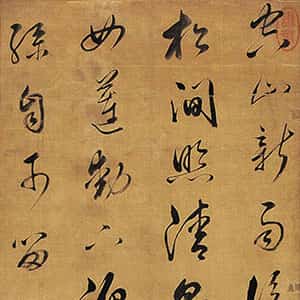 空山新雨後
松澗照清泉
女蓮動下漁
孫自可留